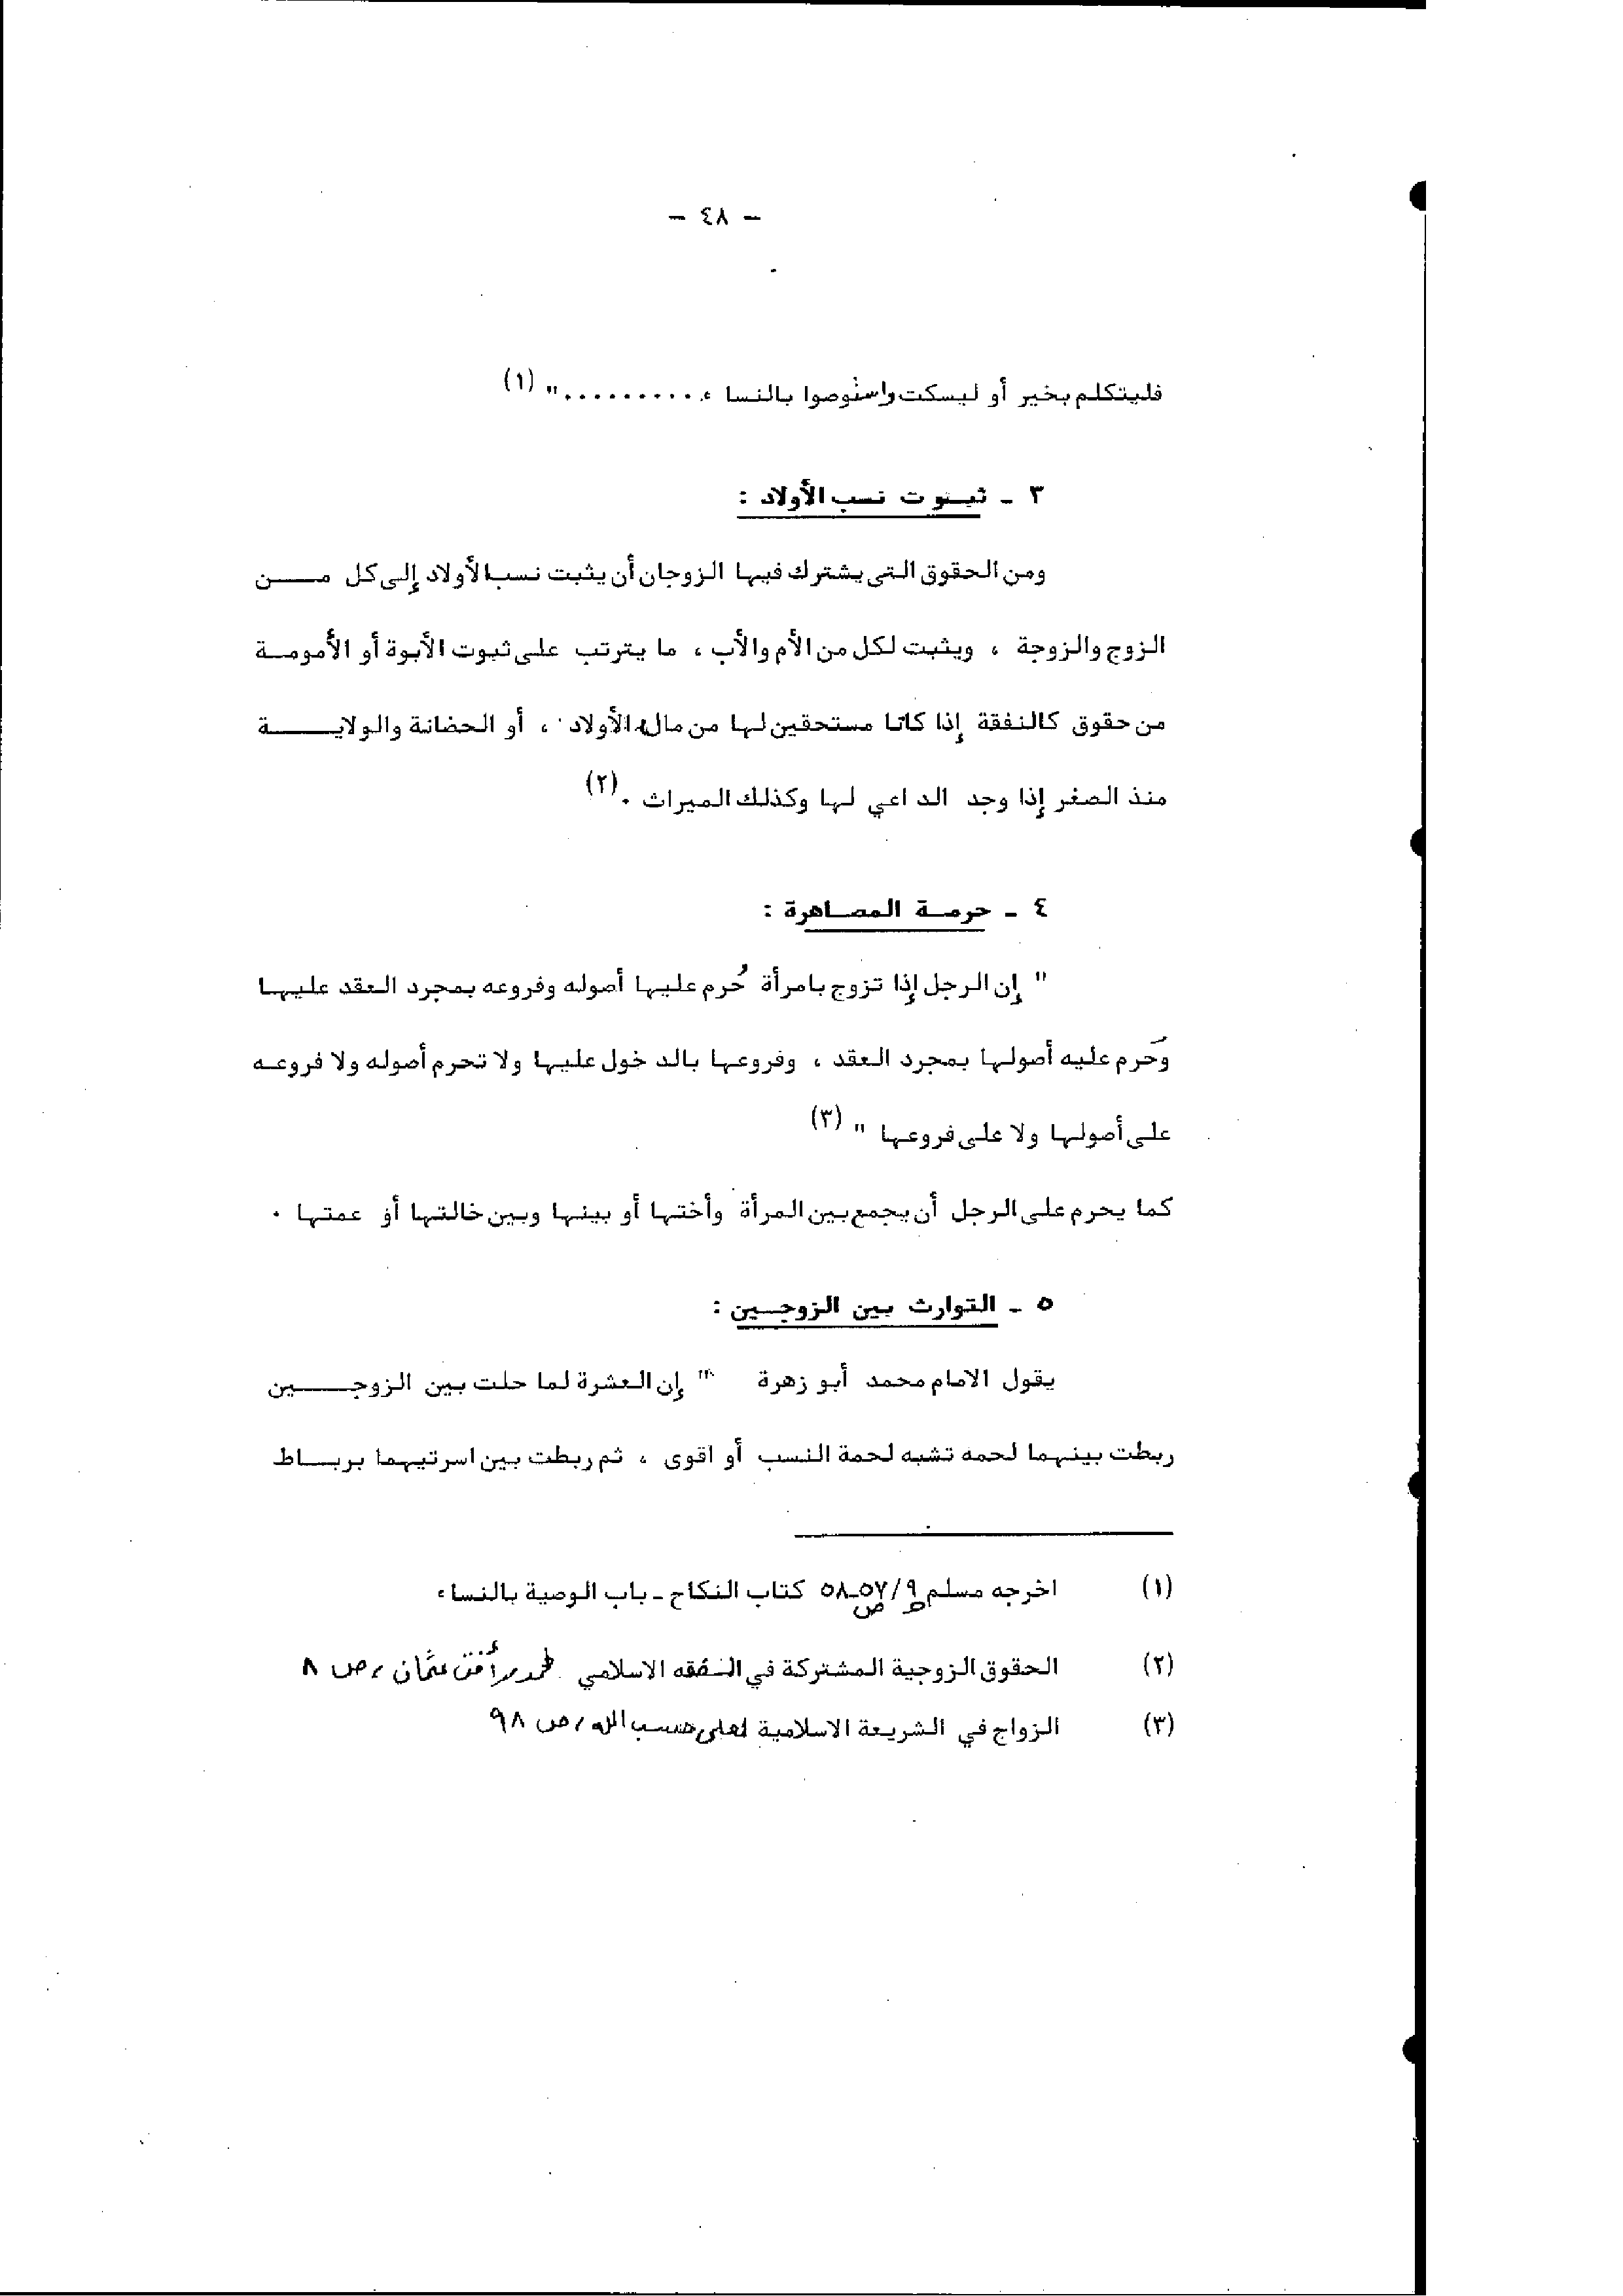 - ٤٨ -
فليتكلم بخير أو ليسكت واستوصوا بالنساء ٠٠٠٠٠٠٠٠٠٠" (١)
٣ - ثبوت نسب الأولاد :
ومن الحقوق التي يشترك فيها الزوجان أن يثبت نسب الأولاد إلى كل من
الزوج والزوجة ، ويثبت لكل من الأم والأب ، ما يترتب على ثبوت الأبوة أو الأمومة
من حقوق كالنفقة إذا كانا مستحقين لها من مال الأولاد ، أو الحضانة والولاية
منذ الصغر إذا وجد الداعي لها وكذلك الميراث . (٢)
٤ - حرمة المصاهرة :
" إن الرجل إذا تزوج بامرأة حُرم عليها أصوله وفروعه بمجرد العقد عليها
وحَرم عليه أصولها بمجرد العقد ، وفروعها بالدخول عليها ولا تحرم أصوله ولا فروعه
على أصولها ولا على فروعها " (٣)
كما يحرم على الرجل أن يجمع بين المرأة وأختها أو بينها وبين خالتها أو عمتها .
٥ - التوارث بين الزوجين :
يقول الامام محمد أبو زهرة " إن العشرة لما حلت بين الزوجين
ربطت بينهما لحمه تشبه لحمة النسب أو اقوى ، ثم ربطت بين اسرتيهما برباط
(١) اخرجه مسلم ٩/ ص ٥٧-٥٨ كتاب النكاح - باب الوصية بالنساء
(٢) الحقوق الزوجية المشتركة في الفقه الاسلامي عثمان ، ص ٨
(٣) الزواج في الشريعة الاسلامية لعلي حسب الله ، ص ٩٨